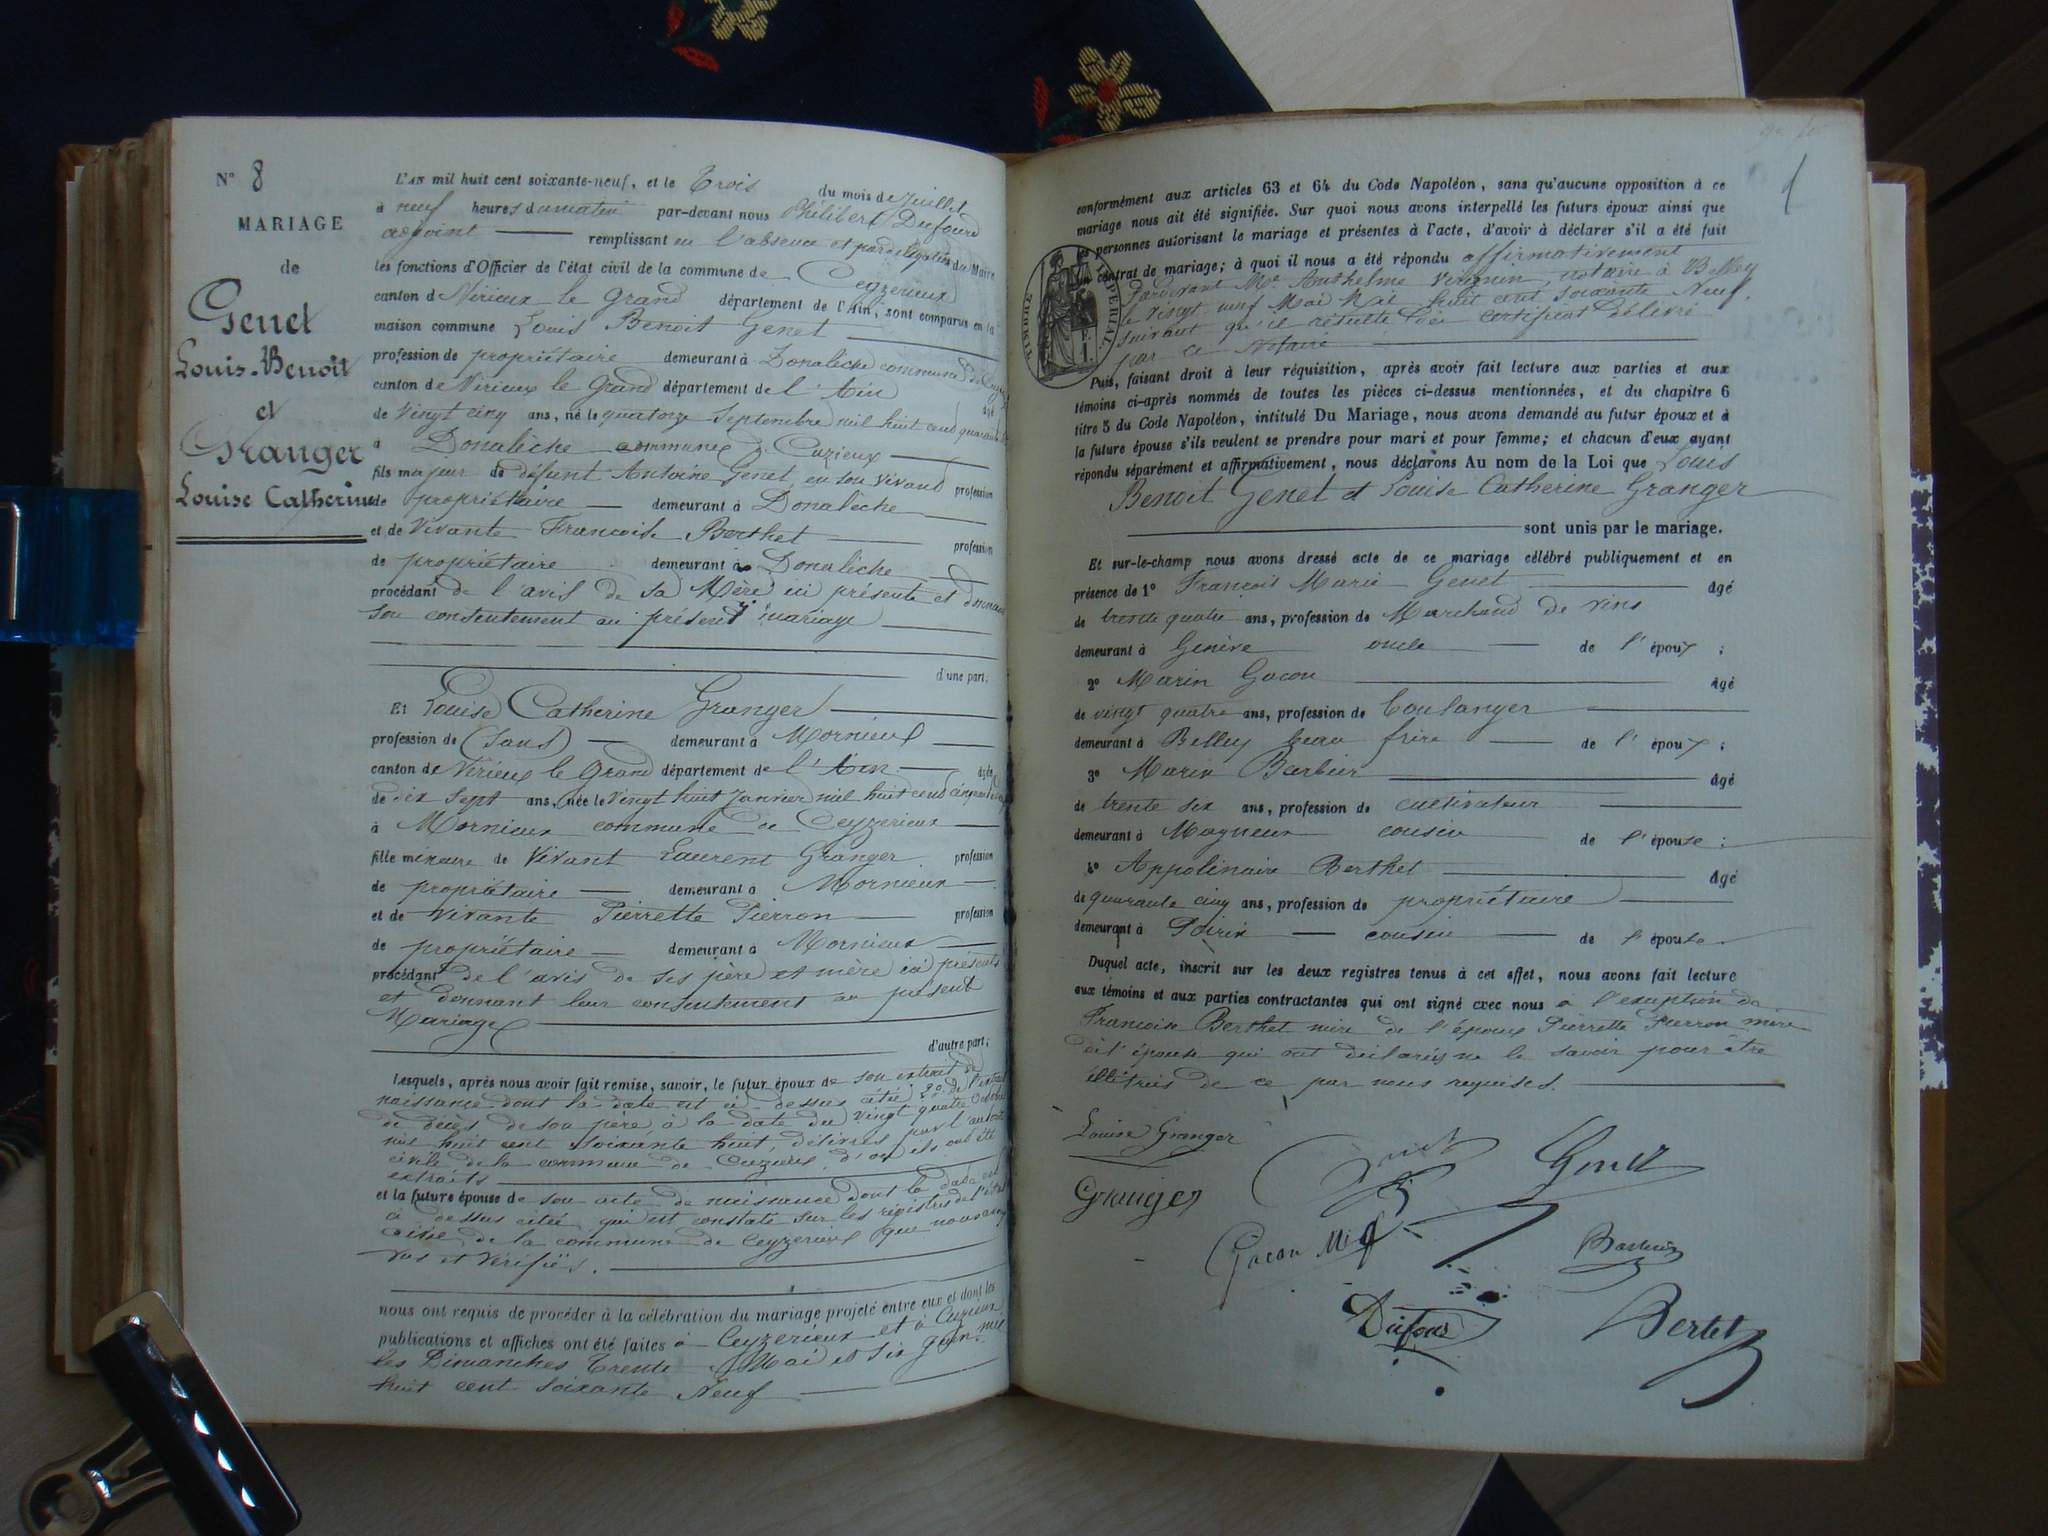 N° 8
MARIAGE
de
Genet
Louis-Benoit
et
Granger
Louise Catherine
L'AN mil huit cent soixante-neuf, et le Trois du mois de Juillet
à neuf heures du matin par-devant nous Philibert Dufour
adjoint remplissant en l'absence et par délégation du Maire
les fonctions d'Officier de l'état civil de la commune de Ceyzerieux
canton d Virieux le Grand département de l'Ain, sont comparus en la
maison commune Louis Benoit Genet
profession de propriétaire demeurant à Donalèche commune de
canton de Virieux le Grand département de l'Ain âgé
de Vingt cinq ans, né le quatorze Septembre mil huit cent quarante
à Donalèche commune de Cuzieux
fils majeur de défunt Antoine Genet, en son vivant profession
de propriétaire demeurant à Donalèche
et de Vivante Francoise Berthet profession
de propriétaire demeurant à Donalèche
procédant de l'avis de sa Mère ici présente et donnant
son consentement au présent mariage
d'une part;
Et Louise Catherine Granger
profession de (sans) demeurant à Mornieux
canton de Virieux le Grand département de l'Ain âgée
de dix sept ans, née le Vingt huit Janvier mil huit cent cinquante
à Mornieux commune de Ceyzerieux
fille mineure de Vivant Laurent Granger profession
de propriétaire demeurant à Mornieux
et de Vivante Pierrette Pierron profession
de propriétaire demeurant à Mornieux
procédant de l'avis de ses père et mère ici présents
et donnant leur consentement au présent
Mariage
d'autre part;
Lesquels, après nous avoir fait remise, savoir, le futur époux de son extrait de
naissance dont la date est ci-dessus citée 2° de l'extrait
de décès de son père, à la date du vingt quatre Octobre
mil huit cent soixante huit délivrés par l'autorité
civile de la commune de Cuzieux d'où ils ont été
extraits
et la future épouse de son acte de naissance dont la date est
ci dessus citée qui est constaté sur les régistres de l'état
civil de la commune de Ceyzerieux que nous avons
vus et vérifiés.
nous ont requis de procéder à la célébration du mariage projeté entre eux et dont les
publications et affiches ont été faites à Ceyzerieux et à Cuzieux
les Dimanches Trente Mai et six Juin mil
huit cent soixante Neuf
1
conformément aux articles 63 et 64 du Code Napoléon, sans qu'aucune opposition à ce
mariage nous ait été signifiée. Sur quoi nous avons interpellé les futurs époux ainsi que
les personnes autorisant le mariage et présentes à l'acte, d'avoir à déclarer s'il a été fait
un contrat de mariage; à quoi il nous a été répondu affirmativement
Pardevant Me Anthelme notaire à Belley
le vingt neuf Mai Mil huit cent soixante Neuf,
suivant qu'il résulte du certificat délivré
par ce Notaire
TIMBRE IMPERIAL
Puis, faisant droit à leur réquisition, après avoir fait lecture aux parties et aux
témoins ci-après nommés de toutes les pièces ci-dessus mentionnées, et du chapitre 6
titre 5 du Code Napoléon, intitulé Du Mariage, nous avons demandé au futur époux et à
la future épouse s'ils veulent se prendre pour mari et pour femme; et chacun d'eux ayant
répondu séparément et affirmativement, nous déclarons Au nom de la Loi que Louis
Benoit Genet et Louise Catherine Granger
sont unis par le mariage.
Et sur-le-champ nous avons dressé acte de ce mariage célébré publiquement et en
présence de 1° François Marie Genet âgé
de trente quatre ans, profession de Marchand de vins
demeurant à Genève oncle de l'époux;
2° Marin Gacon âgé
de vingt quatre ans, profession de boulanger
demeurant à Belley beau frère de l'époux;
3° Marin Barbier âgé
de trente six ans, profession de cultivateur
demeurant à Magneux cousin de l'épouse;
4° Appolinaire Berthet âgé
de quarante cinq ans, profession de propriétaire
demeurant à cousin de l'épouse.
Duquel acte, inscrit sur les deux registres tenus à cet effet, nous avons fait lecture
aux témoins et aux parties contractantes qui ont signé avec nous à l'exception de
Francoise Berthet mère de l'époux Pierrette Pierron mère
de l'épouse qui ont déclarées ne le savoir pour être
illétrées de ce par nous requises.
Louise Granger
Genet
Genet
Granger
Gacon
Barbier
Dufour
Bertet